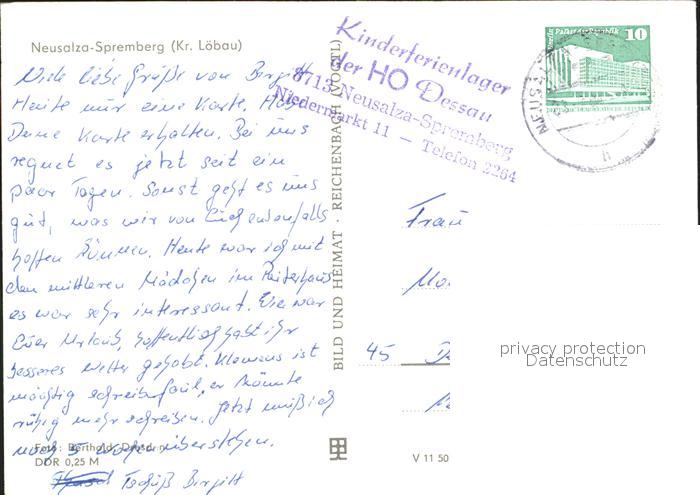 Neusalza-Spremberg (Kr. Löbau)
Viele liebe Grüße von Birgitt
Heute nur eine Karte. Hab
Deine Karte erhalten. Bei uns
regnet es jetzt seit ein
paar Tagen. Sonst geht es uns
gut, was wir von Euch ebenfalls
hoffen können. Heute war ich mit
den mittleren Mädchen im
es war sehr interessant. Wie war
Euer Urlaub, hoffentlich habt ihr
besseres Wetter gehabt. Klemens ist
mächtig schreibfaul, er könnte
ruhig mehr schreiben. Jetzt muß ich
noch 5 überstehen.
Tschüß Birgitt
Foto: Berthold, Dresden
DDR 0,25 M
BILD UND HEIMAT REICHENBACH (VOGTL)
V 11 50
Kinderferienlager
der HO Dessau
8713 Neusalza-Spremberg
Niedermarkt 11 — Telefon 2264
Palast der Republik
10
Frau
45
privacy protection
Datenschutz